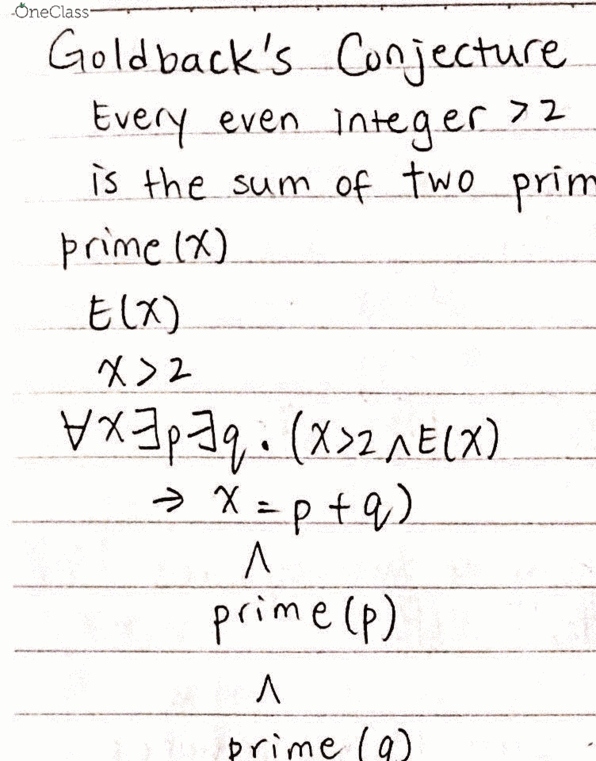 OneClass
Goldback's Conjecture
Every even integer >2
is the sum of two prim
prime(x)
E(x)
x>2
∀x∃p∃q.(x>2∧E(x)
⇒ x=p+q)
∧
prime(p)
∧
prime(q)